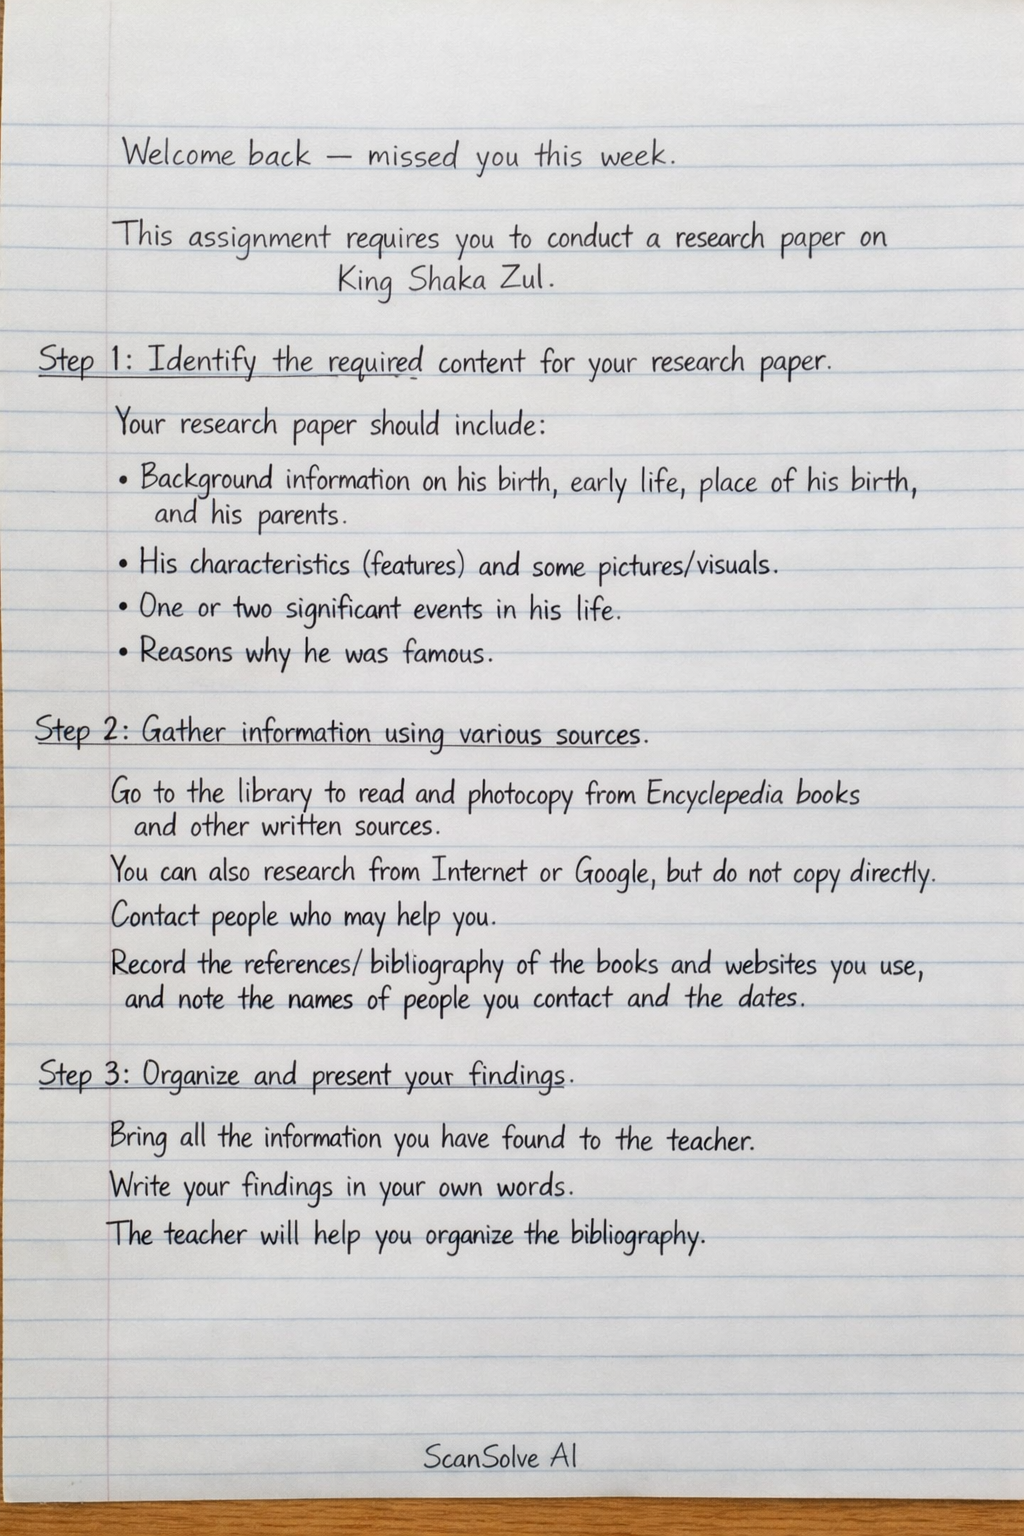 Welcome back — missed you this week.
This assignment requires you to conduct a research paper on
King Shaka Zul.
Step 1: Identify the required content for your research paper.
Your research paper should include:
• Background information on his birth, early life, place of his birth,
and his parents.
• His characteristics (features) and some pictures/visuals.
• One or two significant events in his life.
• Reasons why he was famous.
Step 2: Gather information using various sources.
Go to the library to read and photocopy from Encyclepedia books
and other written sources.
You can also research from Internet or Google, but do not copy directly.
Contact people who may help you.
Record the references/bibliography of the books and websites you use,
and note the names of people you contact and the dates.
Step 3: Organize and present your findings.
Bring all the information you have found to the teacher.
Write your findings in your own words.
The teacher will help you organize the bibliography.
ScanSolve AI